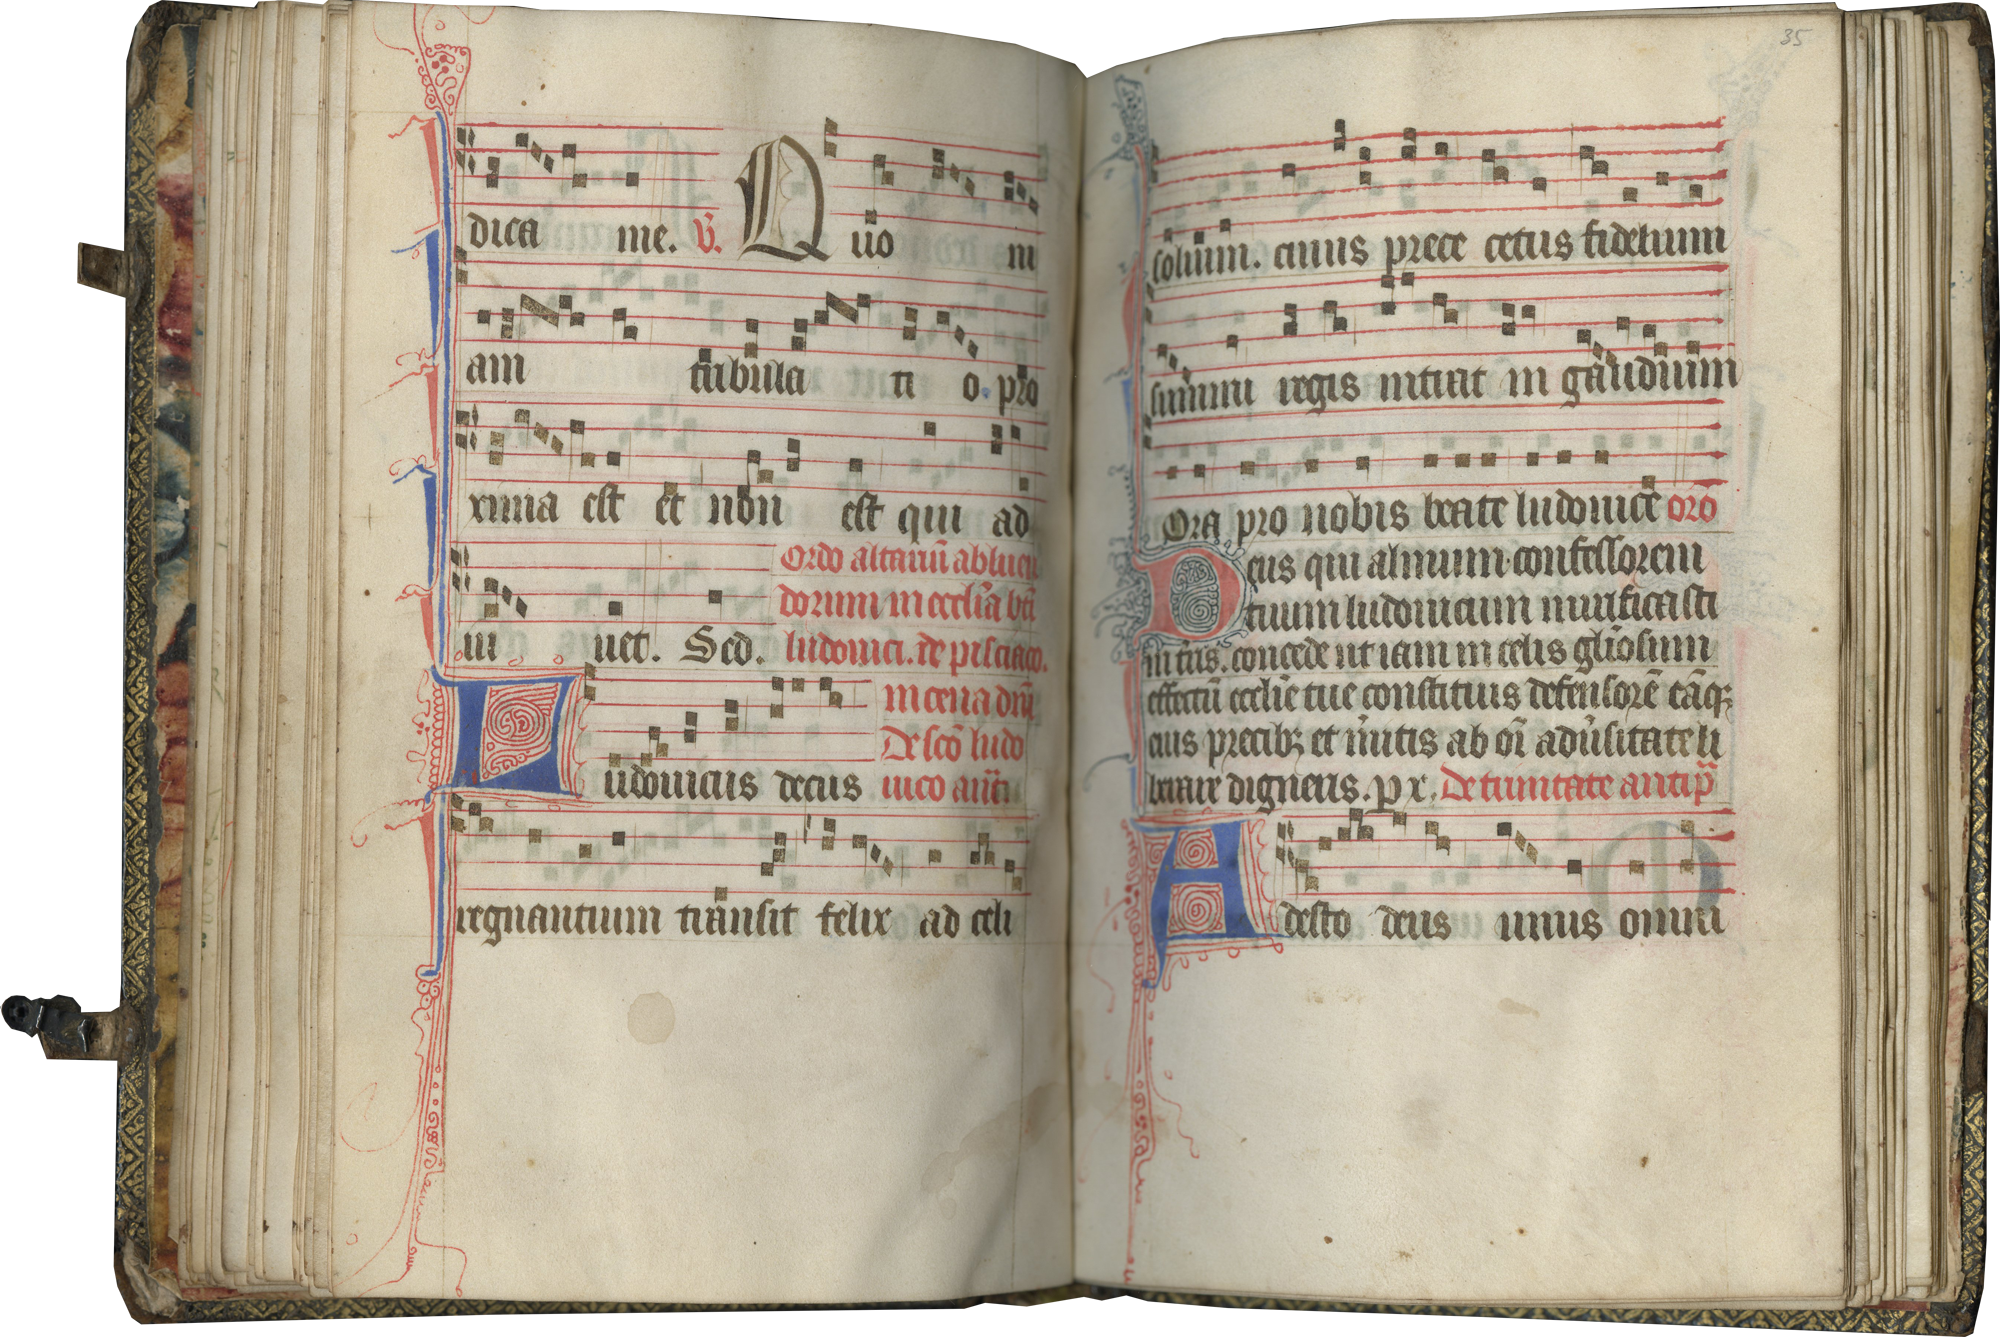 dica me. V. Quo ni
am tribula ti o pro
xima est et non est qui ad
iu uet. Sed.
Ordo altariũ abluen
dorum in eccl̃ia bti
ludouici. de pisciaco.
in cena dñi
De scõ ludo
uico añti
Ludouicus decus
regnantium transit felix ad celi
35
solium. cuius prece cetus fidelium
summi regis intrat in gaudium
Ora pro nobis beate ludouice orõ
Deus qui almum confessorem
tuum ludouicum mirificasti
in tr̃is. concede ut iam in celis gl̃iosum
effectũ eccl̃ie tue constituis defensorẽ
eius precibꝫ et m̃itis ab oĩ adũsitate li
berare digneris. px. De trinitate antip̃
Adesto deus unus omni